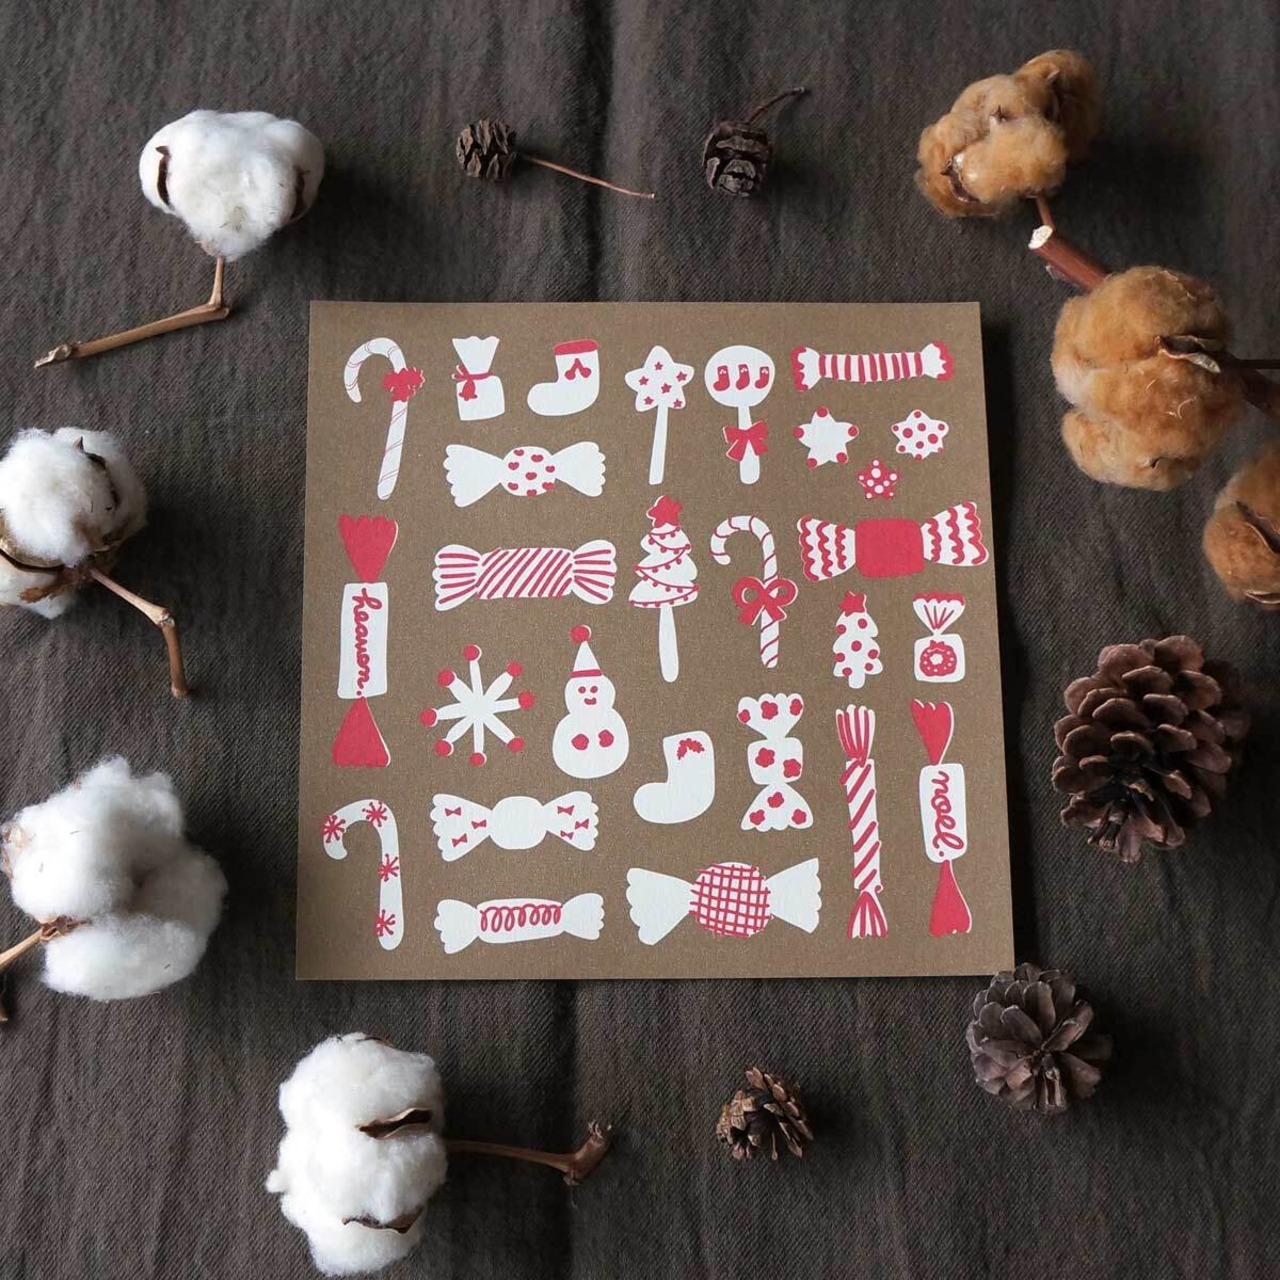 heamon.
noel.